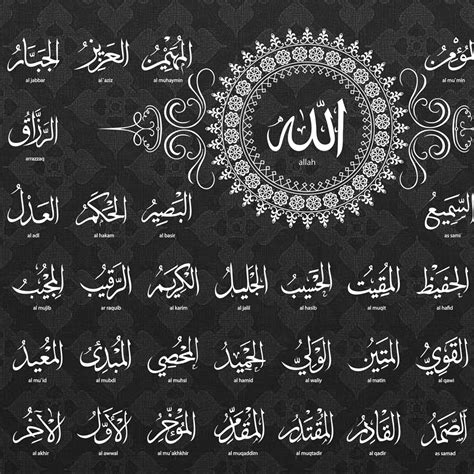 المؤمن المهيمن العزيز الجبار
al mu`min al muhaymin al`aziz al jabbar
الله
allah
الرزاق
arrazzaq
السميع البصير الحكم العدل
as sami al basir al hakam al adl
الحفيظ المقيت الحسيب الجليل الكريم الرقيب المجيب
al hafid al muqit al hasib al jalil al karim ar raquib al mujib
القوي المتين الولي الحميد المحصي المبدئ المعيد
al qawi al matin al waliy al hamid al muhsi al mubdi al mu`id
الصمد القادر المقتدر المقدم المؤخر الأول الآخر
as samad al qadir al muqtadir al muqadim al mu`akhkhir al awwal al akhir